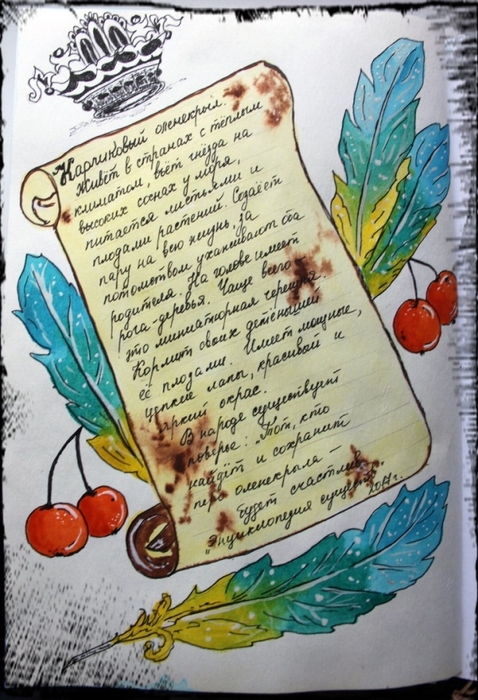 Карликовый оленекрыл.
Живёт в странах с тёплым
климатом, вьёт гнёзда на
высоких соснах у моря,
питается листьями и
плодами растений. Создаёт
пару на всю жизнь, за
потомством ухаживают оба
родителя. На голове имеет
рога-деревья. Чаще всего
это миниатюрная черешня.
Кормит своих детёнышей
её плодами. Имеет мощные,
цепкие лапы, красивый и
яркий окрас.
В народе существует
поверье: "Тот, кто
найдёт и сохранит
перо оленекрыла –
будет счастлив
"Энциклопедия существ"